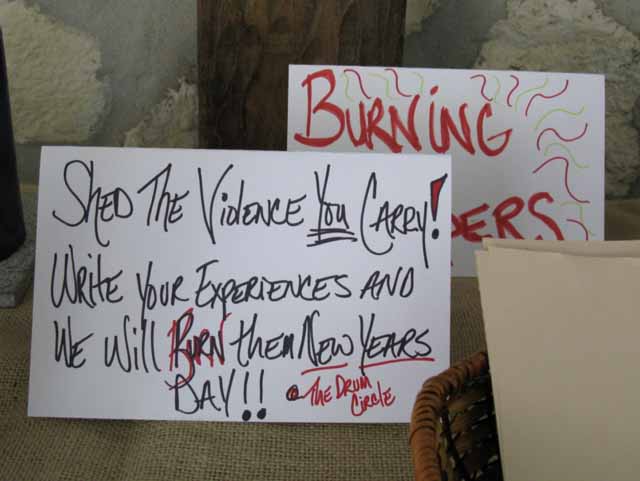 BURNING
SHED THE VIOLENCE YOU CARRY!
WRITE YOUR EXPERIENCES AND
WE WILL BURN them NEW YEARS
DAY!! @ THE DRUM
CIRCLE